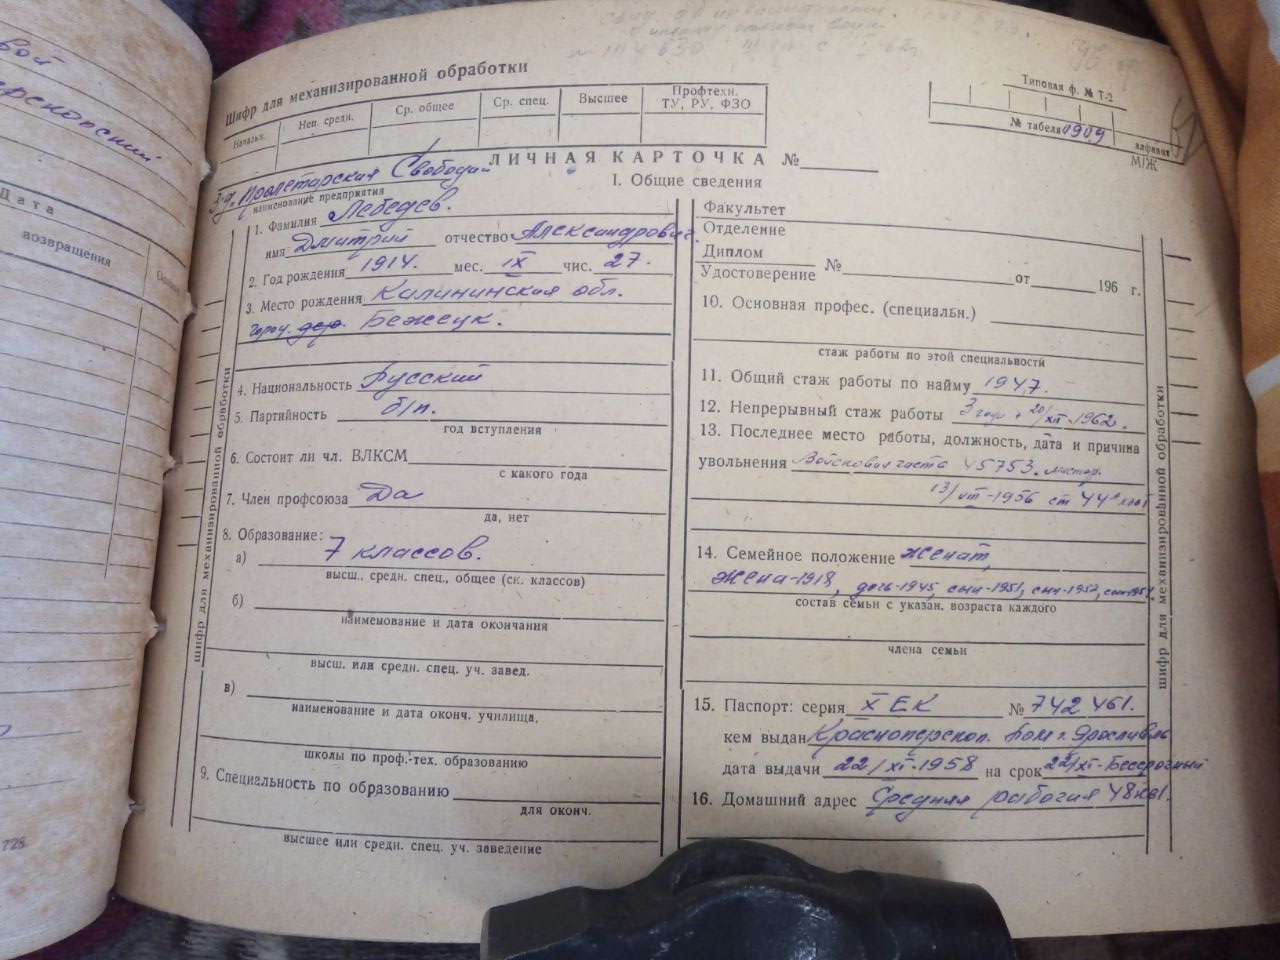 вой
Дата
возвращения
728
Шифр для механизированной обработки
Начальн. Неп. средн. Ср. общее Ср. спец. Высшее Профтехн. ТУ, РУ, ФЗО
Типовая ф. № Т-2
№ табеля 1909 алфавит
М/Ж
ЛИЧНАЯ КАРТОЧКА №
З-д. Пролетарская Свобода
наименование предприятия
I. Общие сведения
1. Фамилия Лебедев.
имя Дмитрий отчество Александрович.
2. Год рождения 1914. мес. IX чис. 27.
3. Место рождения Калининская обл.
город. дер. Бежецк.
4. Национальность Русский
5. Партийность б/п.
год вступления
6. Состоит ли чл. ВЛКСМ
с какого года
7. Член профсоюза Да
да, нет
8. Образование:
а) 7 классов.
высш., средн. спец., общее (ск. классов)
б)
наименование и дата окончания
высш. или средн. спец. уч. завед.
в)
наименование и дата оконч. училища,
школы по проф.-тех. образованию
9. Специальность по образованию
для оконч.
высшее или средн. спец. уч. заведение
Факультет
Отделение
Диплом
Удостоверение № от 196 г.
10. Основная профес. (специальн.)
стаж работы по этой специальности
11. Общий стаж работы по найму 1947.
12. Непрерывный стаж работы 3 года + 20/XII-1962.
13. Последнее место работы, должность, дата и причина
увольнения Войсковая часта 45753. мастер.
13/VIII-1956 ст 44
14. Семейное положение женат,
жена-1918, дочь-1945, сын-1951, сын-1952,
состав семьи с указан. возраста каждого
члена семьи
15. Паспорт: серия X ЕК № 742461.
кем выдан Красноперекоп. г. Ярославль
дата выдачи 22/XI-1958 на срок 22/XI-Бессрочный
16. Домашний адрес Средняя рабочая 48 кв1.
шифр для механизированной обработки
шифр для механизированной обработки